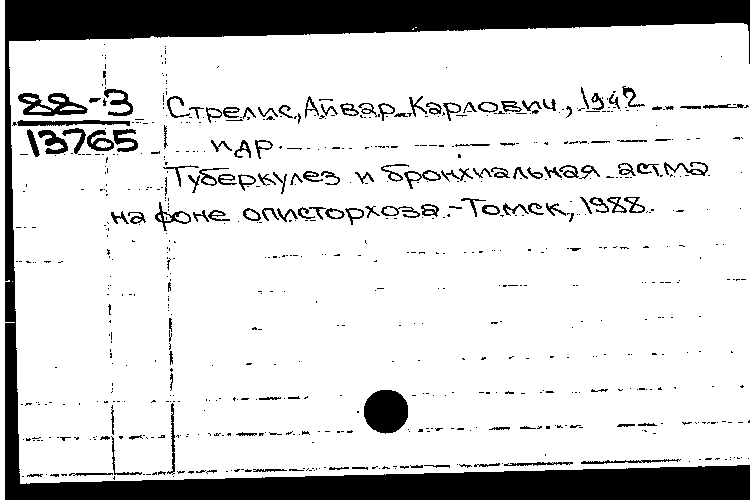 88-3
13765
Стрелис, Айвар Карлович, 1942
и др.
Туберкулез и бронхиальная астма
на фоне описторхоза.-Томск, 1988.